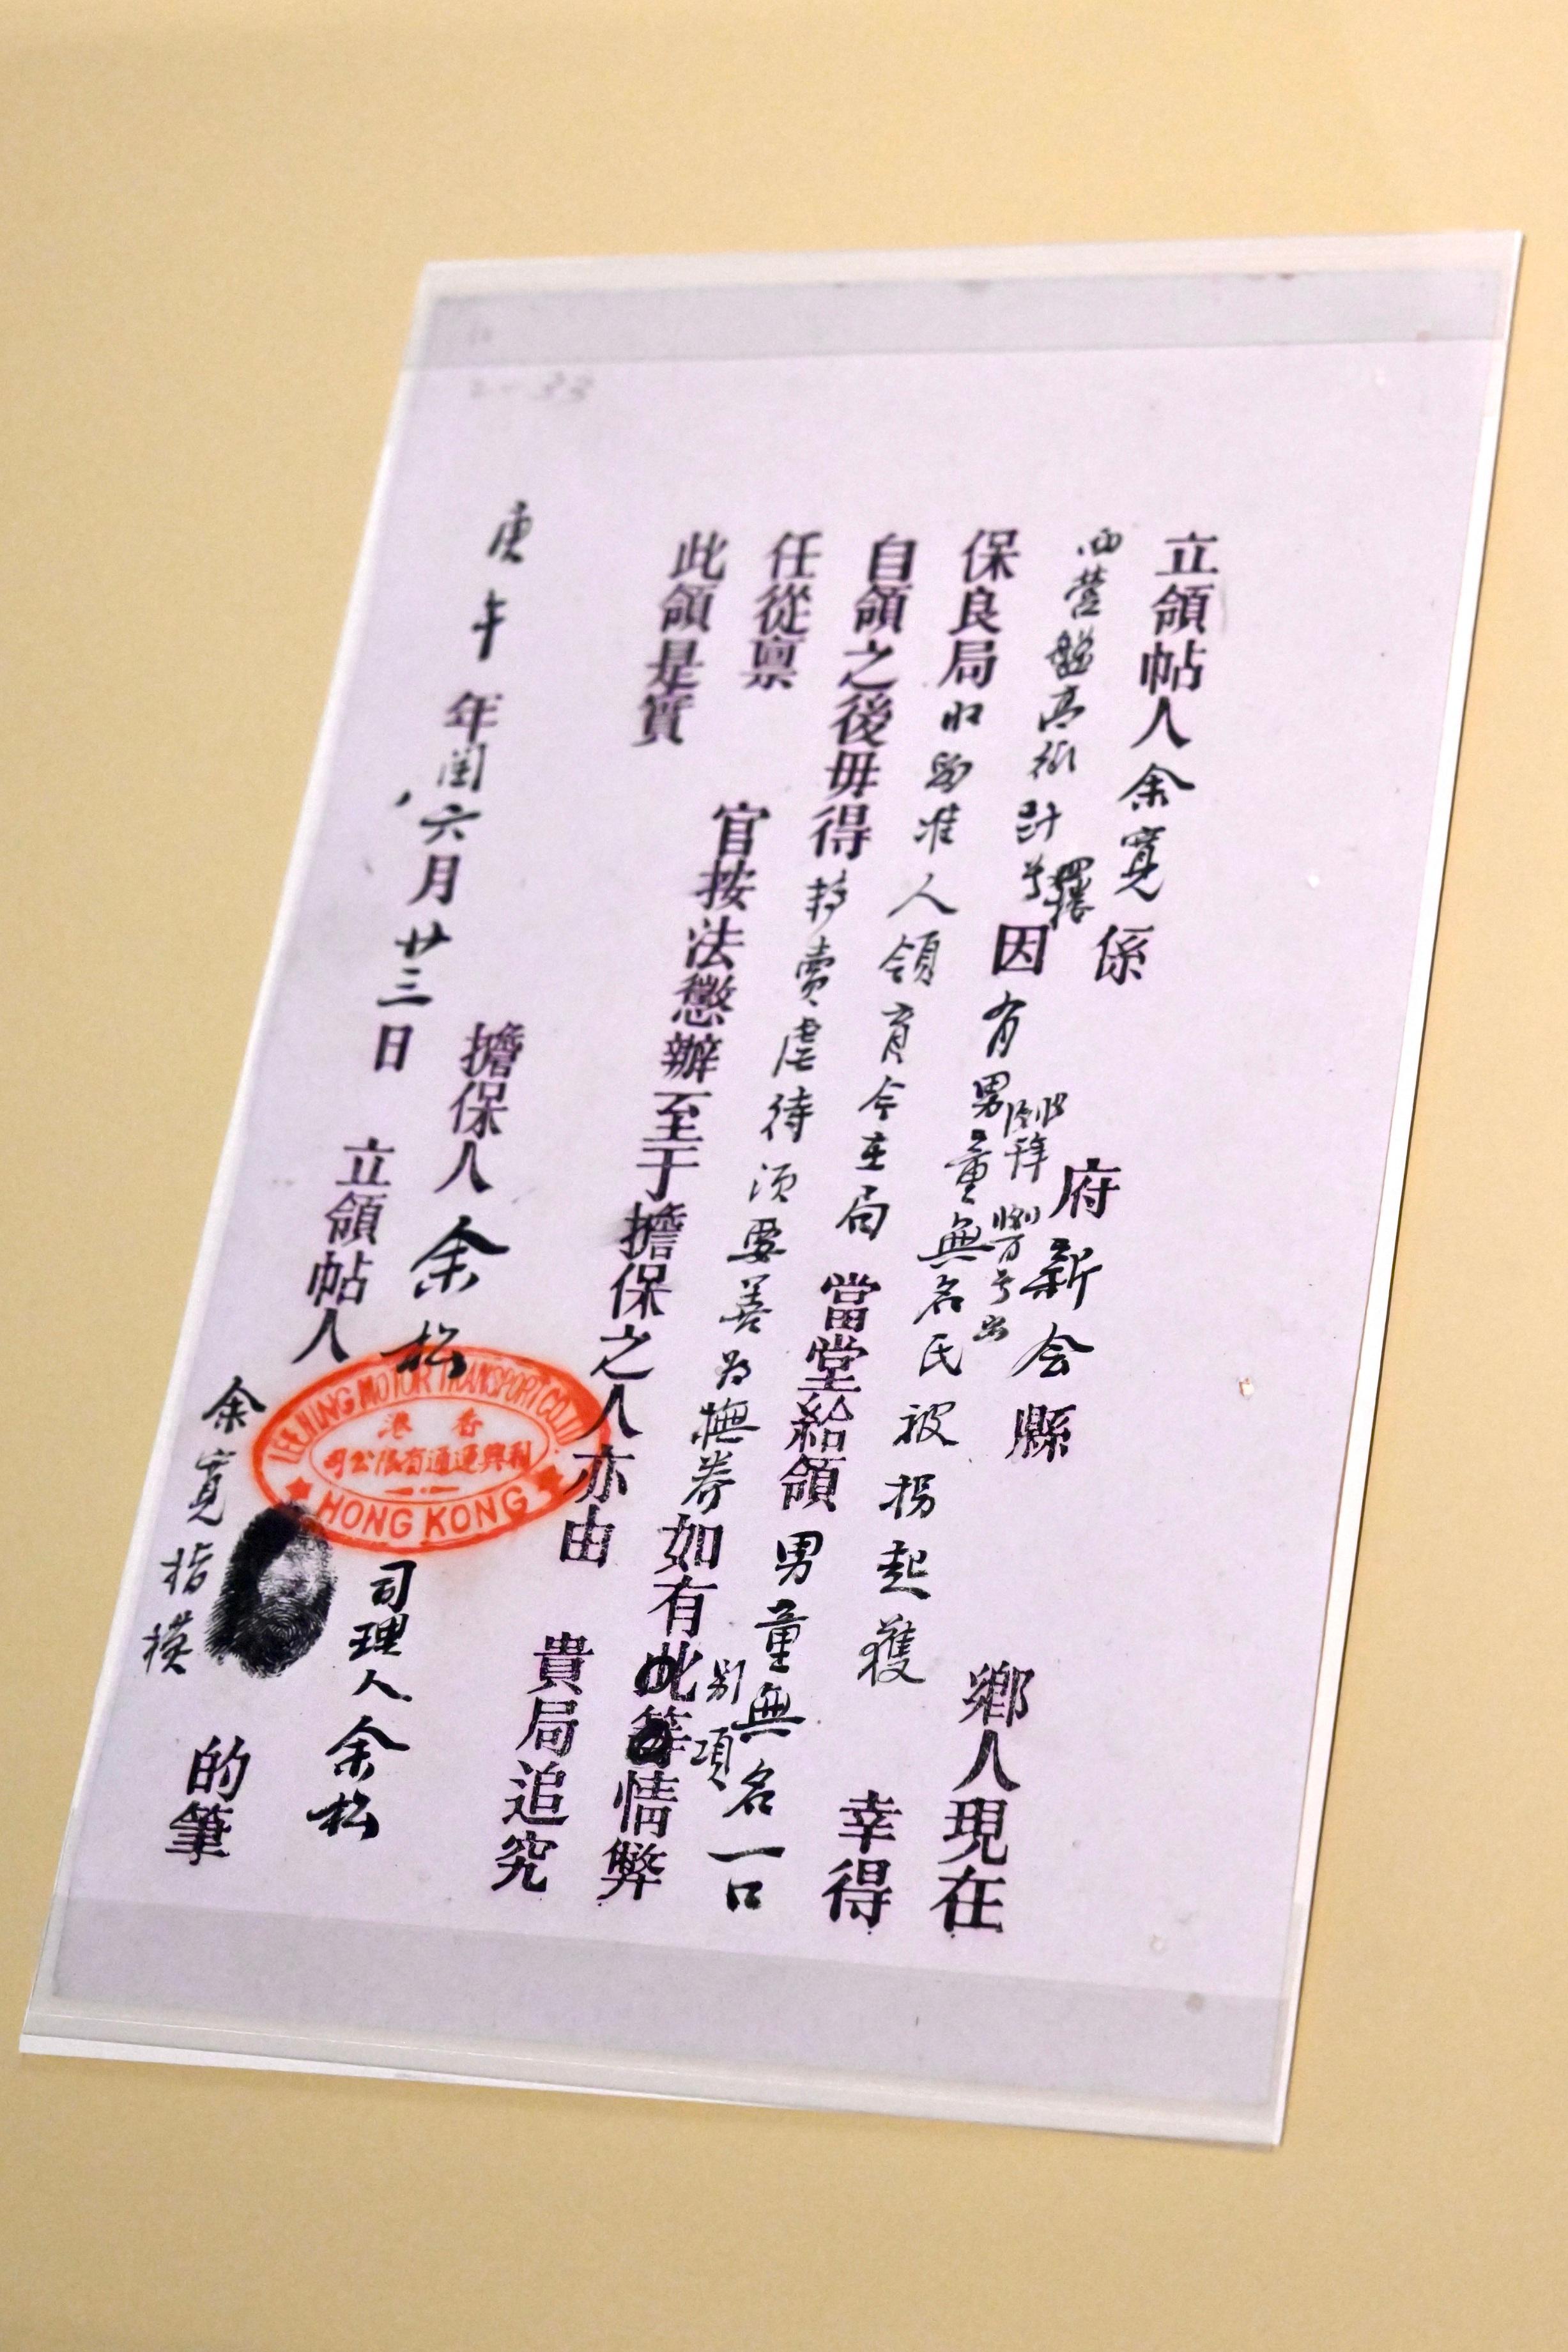 立領帖人余寬係 府新会縣 鄉人現在
西营盤高街 号 因有男童無名氏被拐起獲 幸得
保良局收留准人領育今在局 當堂給領男童無名一口
自領之後毋得 賣虐待須要善為撫养如有別項情弊
任從禀 官按法懲辦至于擔保之人亦由 貴局追究
此領是實
擔保人余松
司理人余松
LEE HING MOTOR TRANSPORT CO. LTD.
香港
利興運通有限公司
HONG KONG
庚午年閏六月廿三日 立領帖人余寬指模 的筆